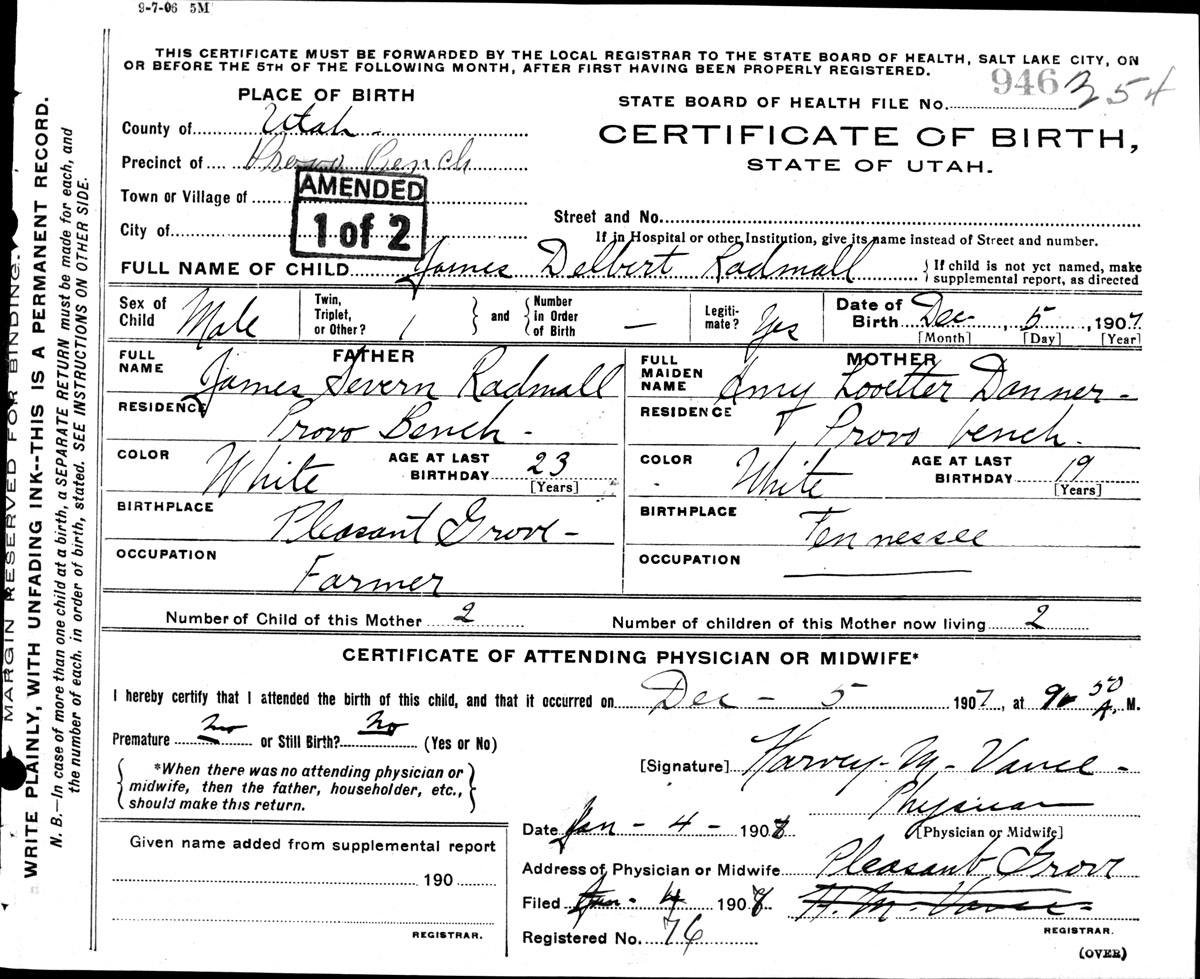 9-7-06 5M
THIS CERTIFICATE MUST BE FORWARDED BY THE LOCAL REGISTRAR TO THE STATE BOARD OF HEALTH, SALT LAKE CITY, ON
OR BEFORE THE 5TH OF THE FOLLOWING MONTH, AFTER FIRST HAVING BEEN PROPERLY REGISTERED.
946 354
PLACE OF BIRTH
STATE BOARD OF HEALTH FILE No.
County of Utah -
CERTIFICATE OF BIRTH,
STATE OF UTAH.
Precinct of Provo Bench
AMENDED
1 of 2
Town or Village of
Street and No.
City of
If in Hospital or other Institution, give its name instead of Street and number.
FULL NAME OF CHILD James Delbert Radmall { If child is not yet named, make
supplemental report, as directed
Sex of Child Male
Twin, Triplet, or Other? 1 } and { Number in Order of Birth —
Legiti- mate? Yes
Date of Birth Dec, 5, 1907
[Month] [Day] [Year]
FATHER
FULL NAME James Severn Radmall
RESIDENCE Provo Bench -
COLOR White AGE AT LAST BIRTHDAY 23
[Years]
BIRTHPLACE Pleasant Grove -
OCCUPATION Farmer
MOTHER
FULL MAIDEN NAME Amy Lovetter Danner -
RESIDENCE Provo bench.
COLOR White AGE AT LAST BIRTHDAY 19
[Years]
BIRTHPLACE Tennessee
OCCUPATION
Number of Child of this Mother 2 Number of children of this Mother now living 2
CERTIFICATE OF ATTENDING PHYSICIAN OR MIDWIFE*
I hereby certify that I attended the birth of this child, and that it occurred on Dec - 5 1907, at 9 - 50 A. M.
Premature no or Still Birth? No (Yes or No)
{ *When there was no attending physician or
midwife, then the father, householder, etc.,
should make this return. }
[Signature] Harvey - M - Vance -
Physician
[Physician or Midwife]
Date Jan - 4 - 1908
Given name added from supplemental report
190
REGISTRAR.
Address of Physician or Midwife Pleasant Grove
Filed Jan - 4 1908 H. M. Vance -
REGISTRAR.
Registered No. 76
(OVER)
MARGIN RESERVED FOR BINDING.
WRITE PLAINLY, WITH UNFADING INK--THIS IS A PERMANENT RECORD.
N. B.—In case of more than one child at a birth, a SEPARATE RETURN must be made for each, and
the number of each, in order of birth, stated. SEE INSTRUCTIONS ON OTHER SIDE.